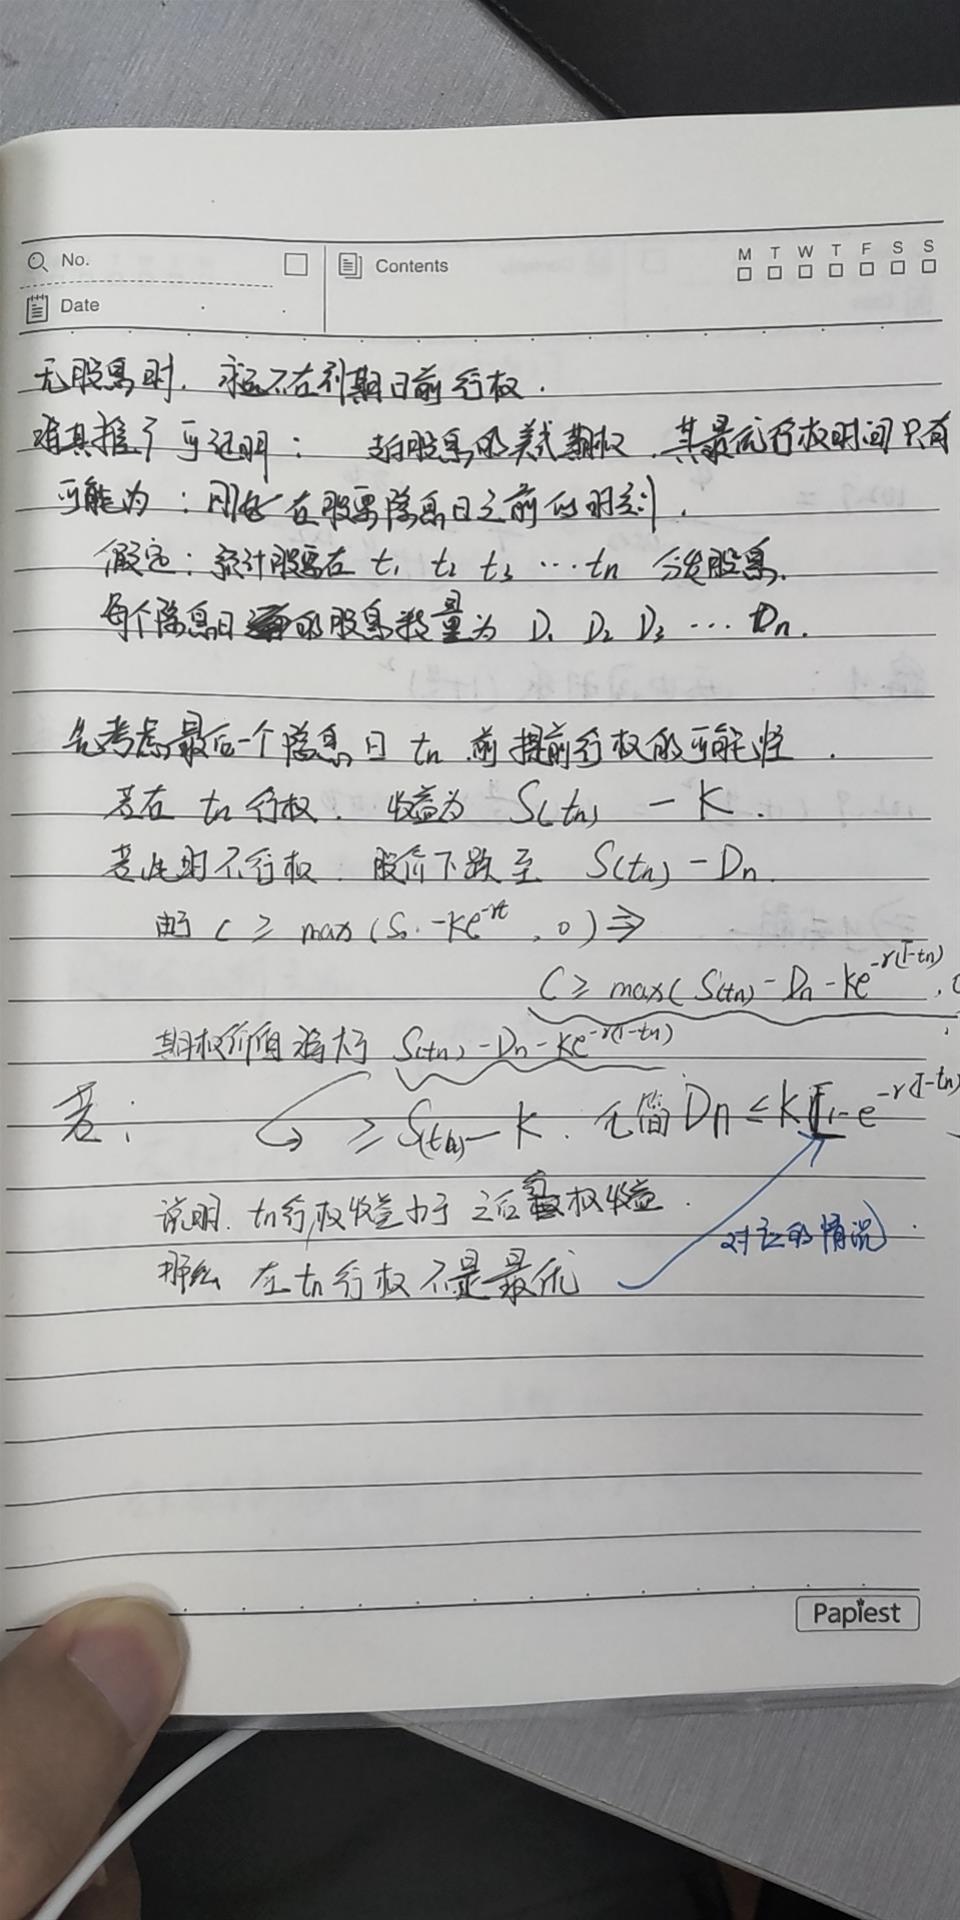 No.
Date
Contents
M T W T F S S
无股息时. 永远不在到期日前行权.
将其推广可证明: 支付股息的美式期权,其最优行权时间只有
可能为:刚好在股票除息日之前的时刻.
假定:预计股票在 t₁ t₂ t₃ … tn 分发股息.
每个除息日的股息数量为 D₁ D₂ D₃ … Dn.
先考虑最后一个除息日 tn 前提前行权的可能性.
若在 tn 行权. 收益为 S(tn) - K.
若此时不行权: 股价下跌至 S(tn) - Dn.
由于 C ≥ max(S₀ - Ke^-rt, 0) ⇒
C ≥ max(S(tn) - Dn - Ke^-r(T-tn), 0
期权价值 S(tn) - Dn - Ke^-r(T-tn)
若: ≥ S(tn) - K. 化简 Dn ≤ K[1-e^-r(T-tn)
说明. tn行权收益小于之后行权收益.
对应的情况
那么 在tn行权不是最优
Papiest